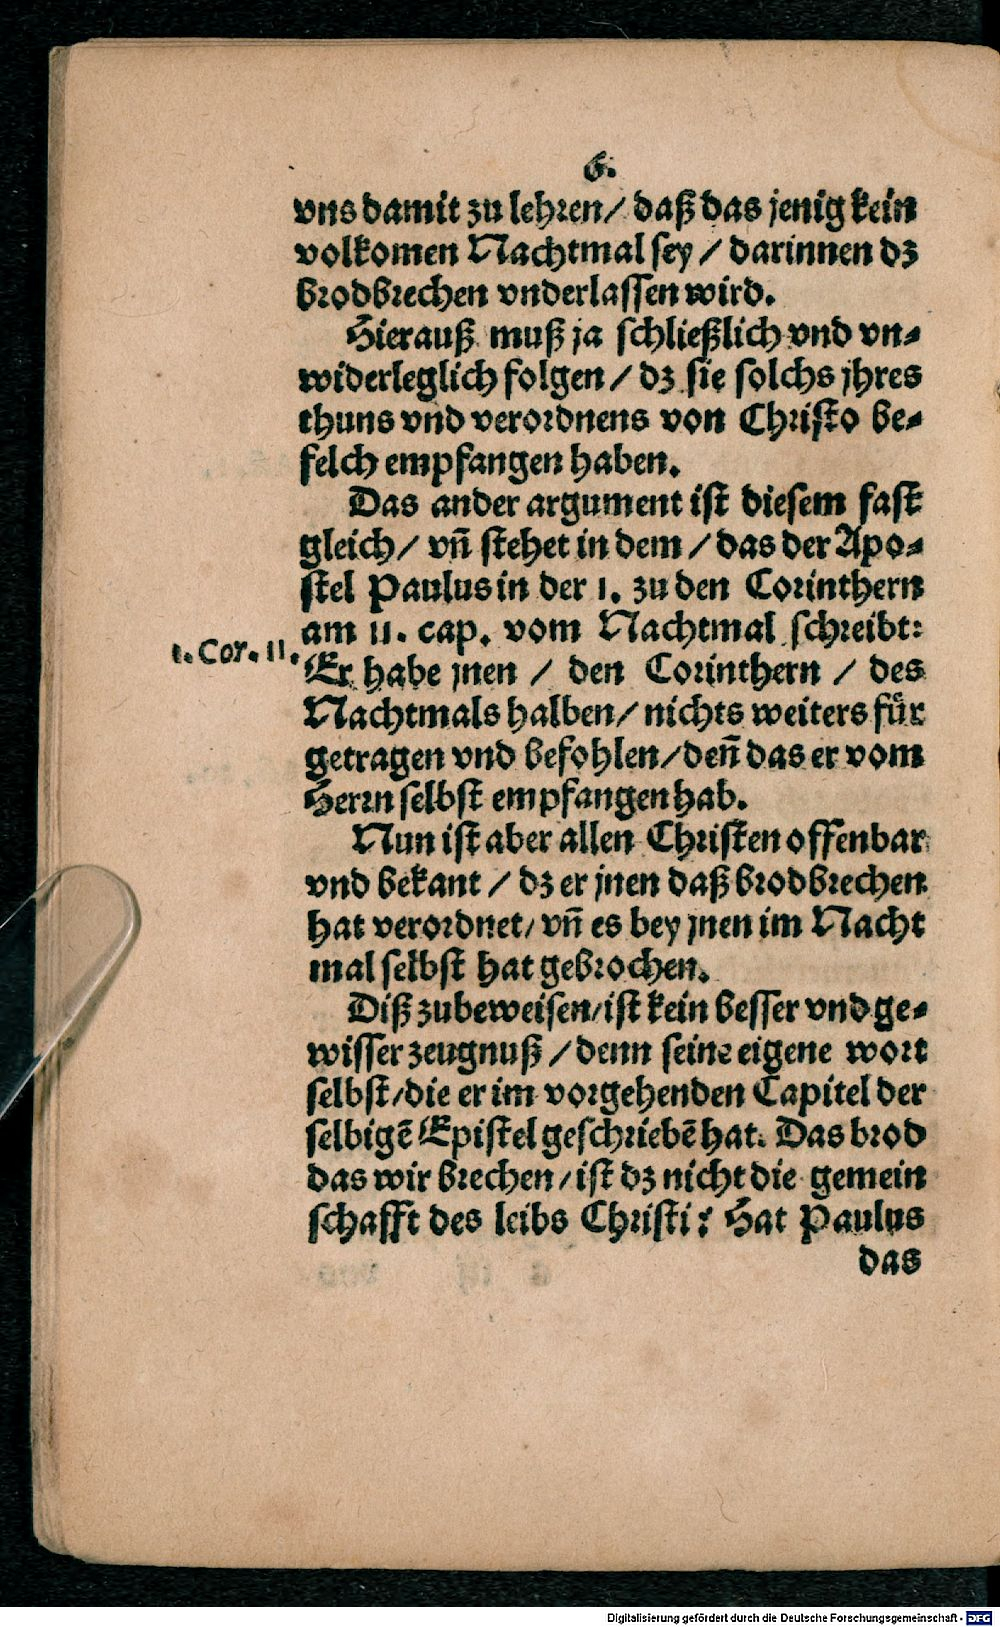 6.
vns damit zu lehren/ daß das jenig kein
volkomen Nachtmal sey / darinnen dz
brodbrechen vnderlassen wird.
Hierauß muß ja schließlich vnd vn⸗
widerleglich folgen / dz sie solchs jhres
thuns vnd verordnens von Christo be⸗
felch empfangen haben.
Das ander argument ist diesem fast
gleich/ vñ stehet in dem / das der Apo⸗
stel Paulus in der 1. zu den Corinthern
am 11. cap. vom Nachtmal schreibt:
1. Cor. 11.
Er habe jnen / den Corinthern / des
Nachtmals halben/ nichts weiters für
getragen vnd befohlen/ deñ das er vom
Herrn selbst empfangen hab.
Nun ist aber allen Christen offenbar
vnd bekant / dz er jnen daß brodbrechen
hat verordnet/ vñ es bey jnen im Nacht
mal selbst hat gebrochen.
Diß zubeweisen/ ist kein besser vnd ge⸗
wisser zeugnuß / denn seine eigene wort
selbst/ die er im vorgehenden Capitel der
selbigē Epistel geschriebē hat. Das brod
das wir brechen/ ist dz nicht die gemein
schafft des leibs Christi? Hat Paulus
das
Digitalisierung gefördert durch die Deutsche Forschungsgemeinschaft - DFG